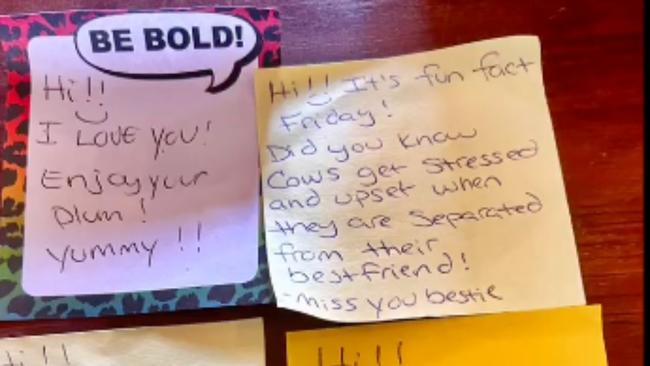 BE BOLD!
Hi!!
I LOVE you!
Enjoy your
plum!
yummy!!
Hi!! It's fun fact
Friday!
Did you know
Cows get stressed
and upset when
they are separated
from their
bestfriend!
-miss you bestie
Hi!!
Hi!!